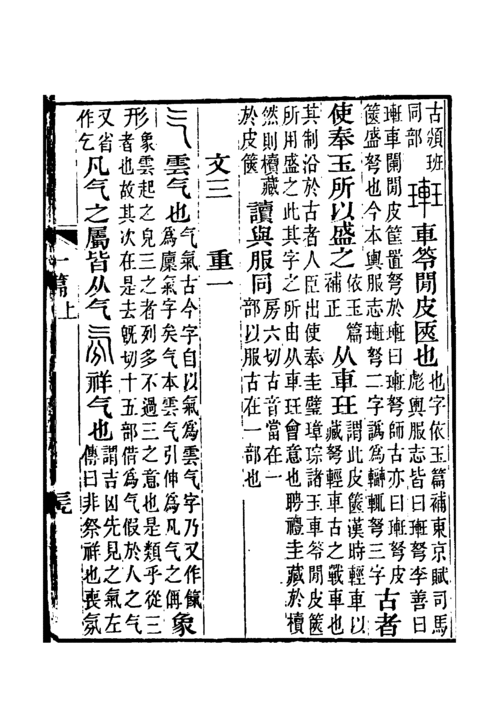 古頒班
同部
玨𤦲車笭閒皮匧也
也字依玉篇補東京賦司馬
彪輿服志皆曰𤦲弩李善曰
𤦲車闌閒皮筐置弩於𤦲曰𤦲弩師古亦曰𤦲弩皮
篋盛弩也今本輿服志𤦲弩二字譌爲轓輒弩三字
古者
使奉玉所以盛之
依玉篇
補正
从車玨
謂此皮篋漢時輕車以
藏弩輕車古之戰車也
其制沿於古者人臣出使奉圭璧璋琮諸玉車笭閒皮篋
所用盛之此其字之所由从車玨會意也聘禮圭藏於櫝
然則櫝藏
於皮篋
讀與服同
房六切古音當在一
部以服古在一部也
文三 重一
气雲气也
气氣古今字自以氣爲雲气字乃又作餼
爲廩氣字矣气本雲气引伸爲凡气之偁
象
形
象雲起之皃三之者列多不過三之意也是類乎从三
者也故其次在是去旣切十五部借爲气假於人之气
又省
作乞
凡气之屬皆从气氛祥气也
謂吉凶先見之氣左
傳曰非祭祥也喪氛
一篇上
三九